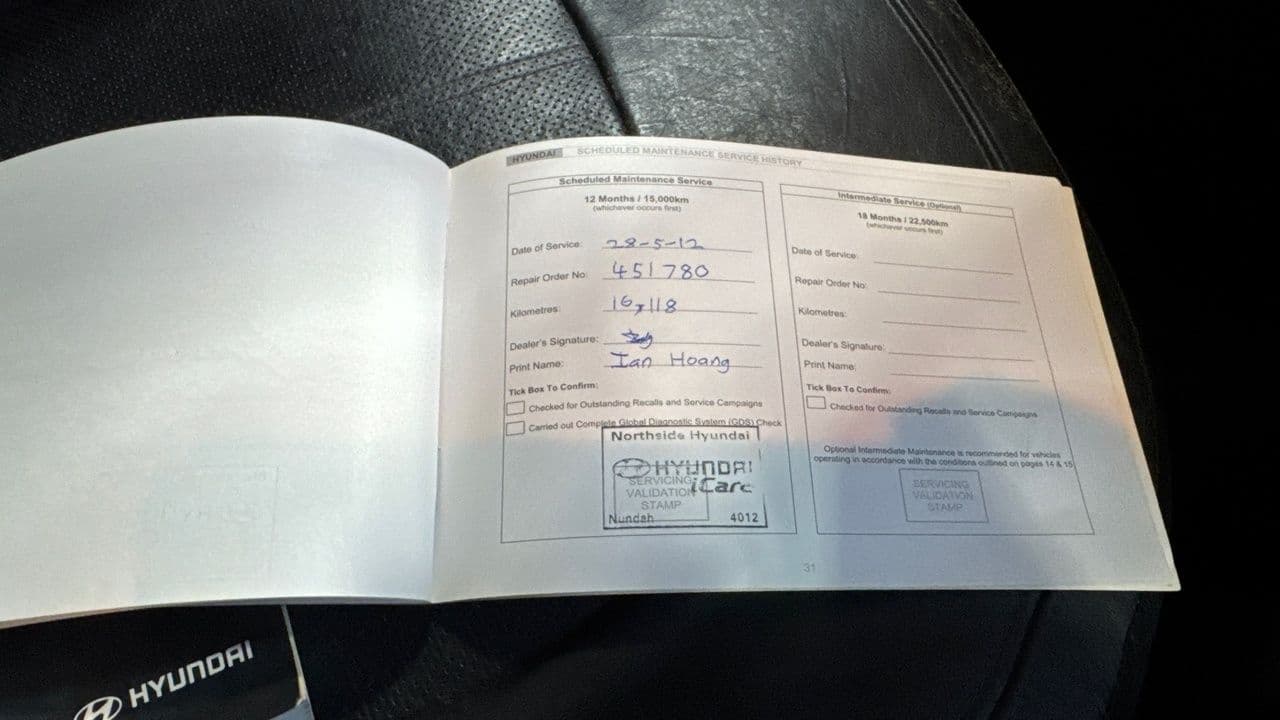 HYUNDAI SCHEDULED MAINTENANCE SERVICE HISTORY
Scheduled Maintenance Service
12 Months / 15,000km
(whichever occurs first)
Date of Service: 28-5-12
Repair Order No: 451780
Kilometres: 16,118
Dealer's Signature:
Print Name: Ian Hoang
Tick Box To Confirm:
Checked for Outstanding Recalls and Service Campaigns
Carried out Complete Global Diagnostic System (GDS) Check
Northside Hyundai
HYUNDAI
iCare
SERVICING
VALIDATION
STAMP
Nundah 4012
Intermediate Service (Optional)
18 Months / 22,500km
(whichever occurs first)
Date of Service:
Repair Order No:
Kilometres:
Dealer's Signature:
Print Name:
Tick Box To Confirm:
Checked for Outstanding Recalls and Service Campaigns
Optional Intermediate Maintenance is recommended for vehicles
operating in accordance with the conditions outlined on pages 14 & 15
SERVICING
VALIDATION
STAMP
31
HYUNDAI